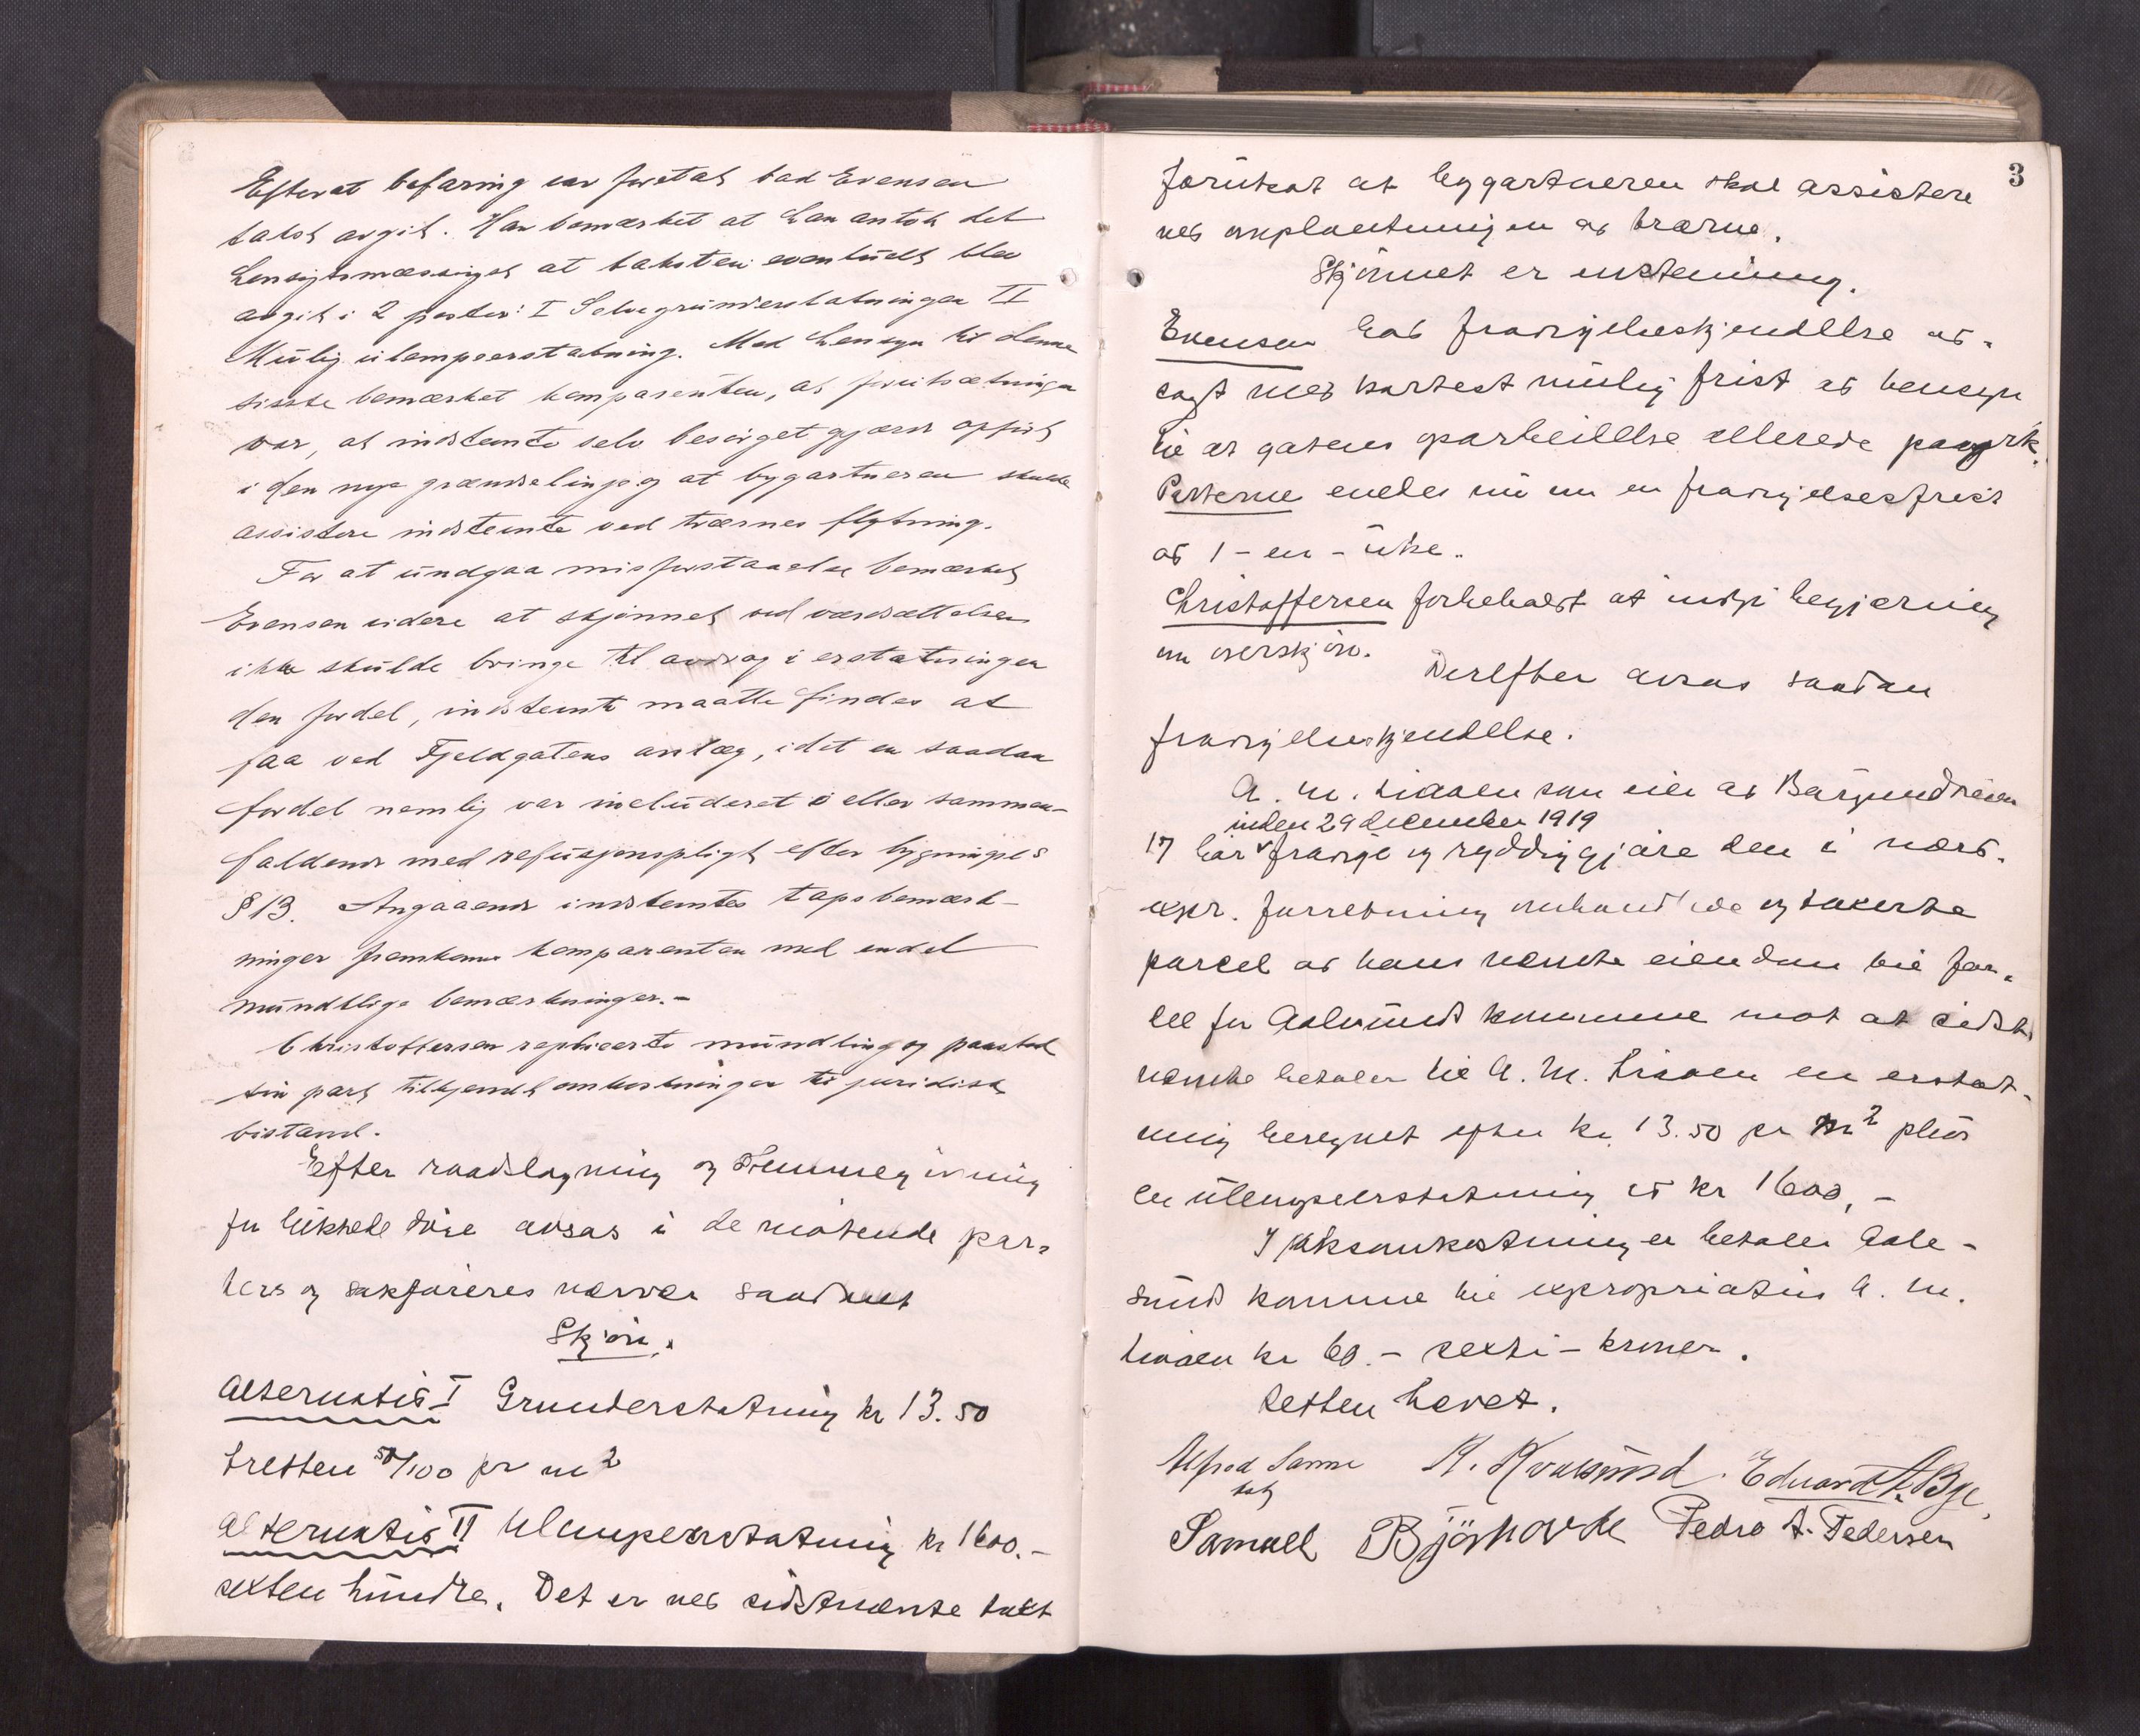 Efterat befaring var foretat bad Evensen
takst avgit. Han bemerket at han antok det
hensigtsmæssigst at taksten eventuelt blev
avgit i 2 poster: I Selve grunderstatningen II
Mulig ulempeerstatning. Med hensyn til denne
sidste bemerket komparenten, at forutsætningen
var, at indstevnte selv besørget gjærde opført
i den nye grændselinje og at bygartneren skulde
assistere indstevnte ved trærnes flytning.
For at undgaa misforstaaelse bemerket
Evensen videre at skjønnet ved værdsættelsen
ikke skulde bringe til avdrag i erstatningen
den fordel, indstevnte maatte findes at
faa ved Fjeldgatens anlæg, idet en saadan
fordel nemlig var includeret i eller sammen-
faldende med refusjonspligt efter bygningsl s
§ 13. Angaaende indstevntes tapsbemerk-
ninger fremkom komparenten med endel
mundtlige bemerkninger. -
Christoffersen replicerte mundtlig og paastod
sin part tilkjendt omkostninger til juridisk
bistand.
Efter raadslagning og stemmegivning
for lukkede døre avsas i de møtende par-
ters og sakføreres nærvær saadant
Skjøn.
Alternativ I Grunderstatning kr 13.50
tretten 50/100 pr m2
Alternativ II Ulempeerstatning kr 1600.-
sexten hundre. Det er ved sidstnævnte takst
3
forutsat at bygartneren skal assistere
ved omplantningen av trærne.
Skjønnet er enstemmig.
Evensen bad fravigelseskjendelse av-
sagt med kortest mulig frist av hensyn
til at gatens oparbeidelse allerede paagik.
Parterne enedes nu om en fravigelsesfrist
av 1 - en - uke.
Christoffersen forbeholdt at indgi begjæring
om overskjøn.
Derefter avsas saadan
fravigelseskjendelse.
A. M. Liaaen som eier av Borgundveien
inden 29 december 1919
17 bør fravige og ryddiggjøre den i nærv.
expr. forretning omhandlede og takserte
parcel av hans nævnte eiendom til for-
del for Aalesunds kommune mot at sidst-
nævnte betaler til A. M. Liaaen en erstat-
ning beregnet efter kr. 13.50 pr m2 plus
en ulempeerstatning av kr 1600,-
I saksomkostninger betaler Aale-
sunds kommune til expropriatus A. M.
Liaaen kr 60.- sexti - kroner.
Retten hevet.
Alfred Sanne K. Kvalsund. Edvard A. Bye,
sets
Samuel Bjørnovde Pedro A. Pedersen